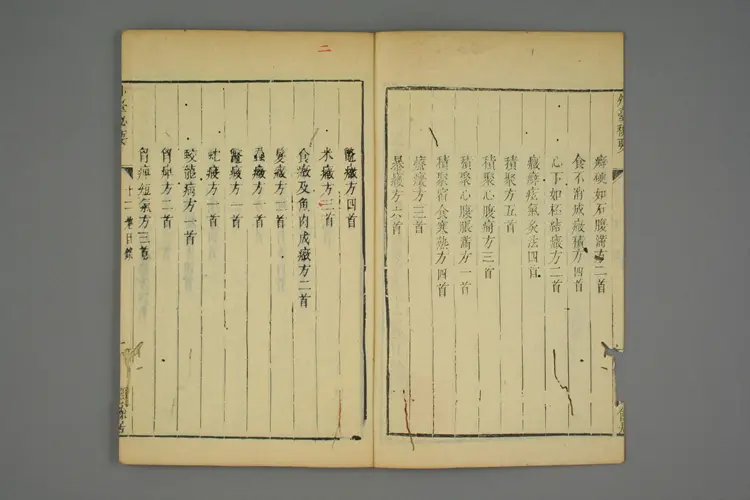 癖硬如石腹滿方二首
食不消成癥積方四首
心下如杯結癥方二首
癥癖痃氣灸法四首
積聚方五首
積聚心腹痛方三首
積聚心腹脹滿方一首
積聚宿食寒熱方四首
療癥方三首
暴癥方六首
鱉癥方四首
米癥方三首
食癥及魚肉成癥方二首
髮癥方三首
蝨癥方一首
鷄癥方一首
蛇瘕方一首
蛟龍病方一首
胷痺方二首
胷痺短氣方三首
十二卷目錄
二